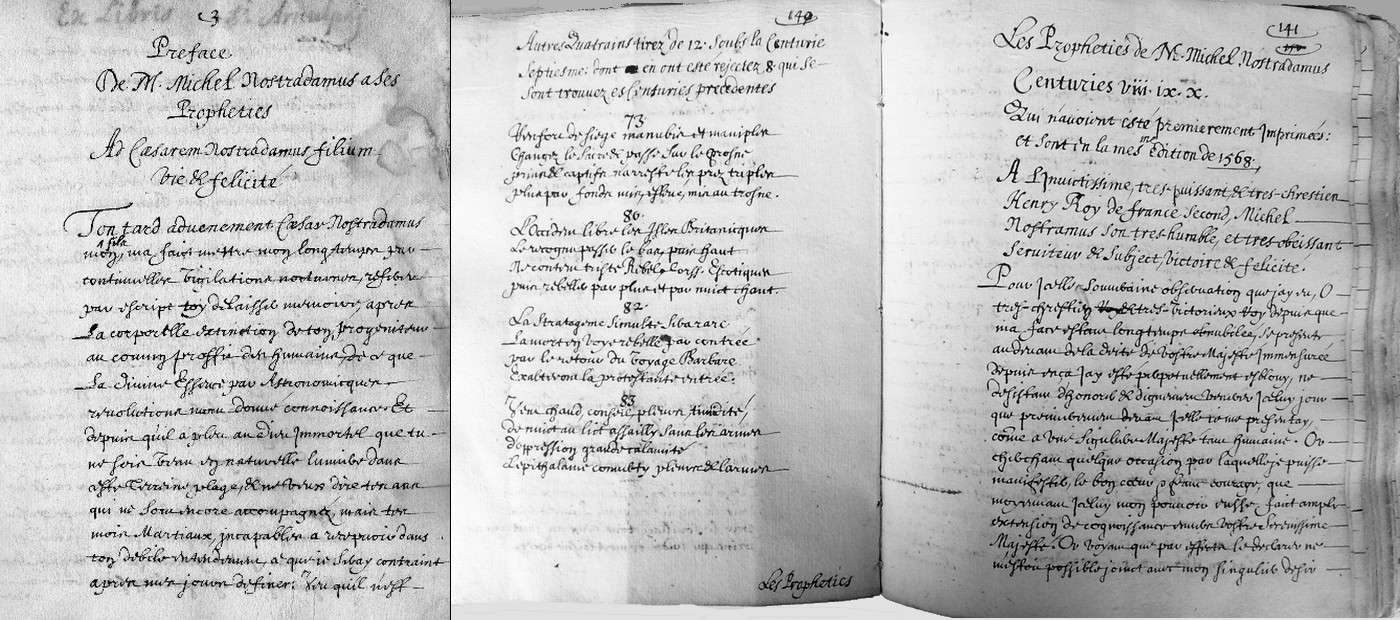 3
Ex Libris St Arnulphi
Preface
De M. Michel Nostradamus a ses
Propheties
Ad Cæsarem Nostradamus filium
vie & felicité
Ton tard advenement Cæsar Nostradamus
mon fils, ma faict mettre mon long temps par
continuelles vigilations nocturnes, referer
par escript toy delaisser memoire, apres
La corporelle extinction de ton progeniteur
au commun proffit des humains, de ce que
La divine Essence par Astronomicques
revolutions m'ont donné connoissance. Et
depuis qu'il a pleu au dieu Immortel que tu
ne sois venu en naturelle lumiere dans
ceste Terreine plage, & ne veux dire tes ans
qui ne sont encore accompagnez, mais tes
mois Martiaux, incapables a recepvoir dans
ton debile entendement, ce que ie seray contraint
apres mes jours definer: Veu quil n'est
140
Autres Quatrains tirez de 12. soubs la Centurie
Septiesme: dont en ont esté rejectez 8. qui se
sont trouvez es Centuries precedentes
73
Renfort de sieges manubis et maniples
Changez le sacre & passe sur le prosne
prins & captifs n'arreste les prez triples
plus par fonds mis, esleve, mis au trosne.
80
L'Occident libre les Isles Britanicques
Le recogneu passer le bas, puis haut
Ne content triste Rebel, corss. Escotiques
puis rebeller par plus et par nuict chaut.
82
La Stratageme simulte sera rare
La mort en voye rebelle par contrée
par le retour du Voyage Barbare
Exalteront la protestante entrée.
83
Vent chaud, conseil, pleurs, timidité,
de nuict au lict assailly sans les armes
d'oppression grande calamité
L'epithalame converty pleurs & larmes
Les Propheties
141
Les Propheties de M. Michel Nostradamus
Centuries VIII. IX. X.
Qui n'avoient esté premierement Imprimées:
et sont en la mesme Edition de 1568.
A L'Invictissime, tres-puissant, & tres-chrestien
Henry Roy de france Second, Michel
Nostramus son tres-humble, et tres obeissant
serviteur & subject, victoire & felicité.
Pour Icelle souveraine observation que j'ay eu, O
tres-chrestien & tres-victorieux Roy depuis que
ma face estant long temps obnubilée, se presente
au devant de la deité de vostre Majesté Immesurée
depuis en ça J'ay esté perpetuellement esblouy, ne
desistant d'honorer & dignement venerer Iceluy jour
que premierement devant Icelle ie me presentay,
côme a une singuliere Majesté tant humaine. Or
cherchant quelque occasion par laquelle je puisse
manifester le bon cœur, & franc courage, que
moyennant Iceluy mon pouvoir eusse faict ample
extension de cognoissance envers vostre serenissime
Majesté. Or voyant que par effects le declarer ne
m'estoit possible joinct avec mon singulier desir